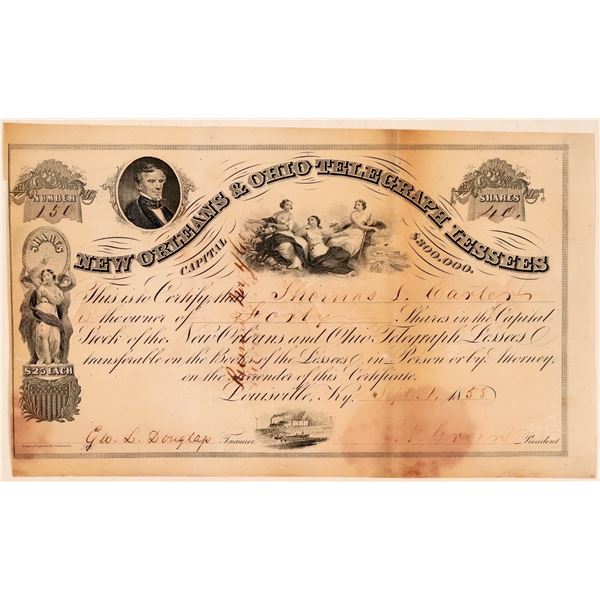 NUMBER
150
SHARES
40
NEW ORLEANS & OHIO TELEGRAPH LESSEES
CAPITAL $300,000.
SHARES
$25 EACH
This is to Certify, that Thomas L. Carter
is the owner of Forty Shares in the Capital
Stock of the New Orleans and Ohio Telegraph Lessees
transferable on the Books of the Lessees in Person or by Attorney,
on the surrender of this Certificate.
Louisville, Ky. Sept. 1, 1858
Geo. L. Douglass Treasurer.
N. Green President